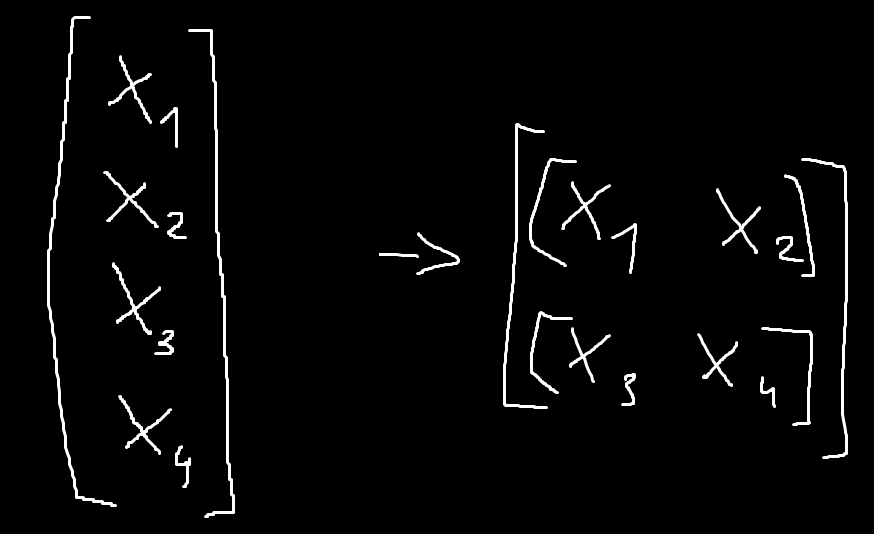 [X₁
X₂
X₃
X₄] → [[X₁ X₂]
[X₃ X₄]]